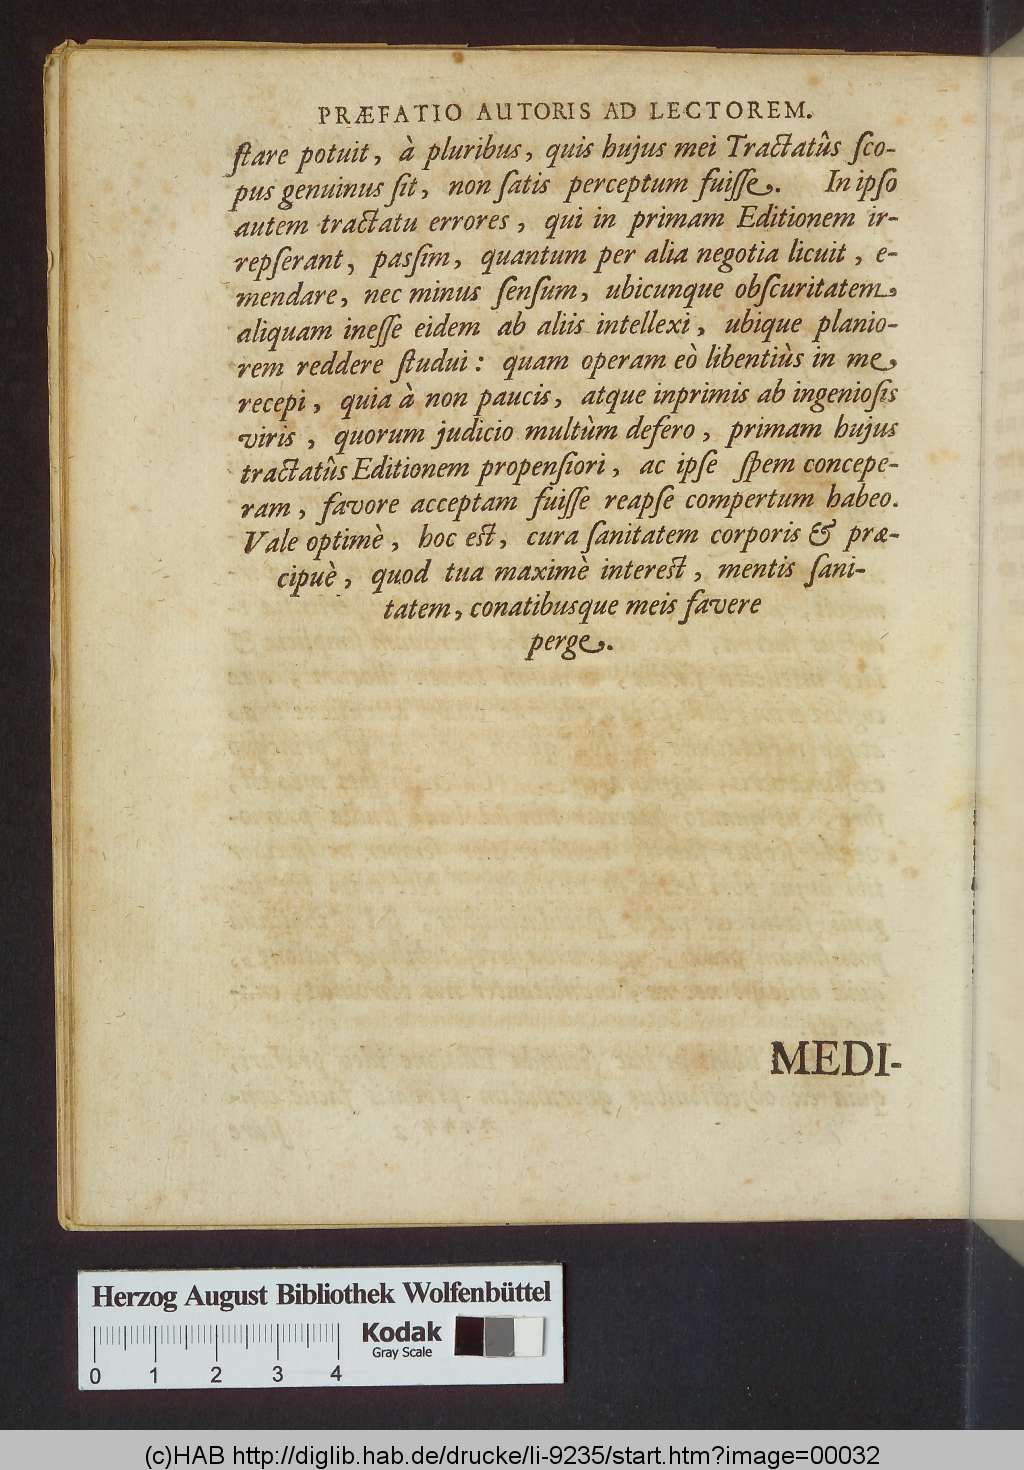 PRÆFATIO AUTORIS AD LECTOREM.
ſtare potuit, à pluribus, quis hujus mei Tractatûs ſco-
pus genuinus ſit, non ſatis perceptum fuiſſe. In ipſo
autem tractatu errores, qui in primam Editionem ir-
repſerant, paſsim, quantum per alia negotia licuit, e-
mendare, nec minus ſenſum, ubicunque obſcuritatem,
aliquam ineſſe eidem ab aliis intellexi, ubique planio-
rem reddere ſtudui: quam operam eò libentiùs in me,
recepi, quia à non paucis, atque inprimis ab ingenioſis
viris, quorum judicio multùm defero, primam hujus
tractatûs Editionem propenſiori, ac ipſe ſpem concepe-
ram, favore acceptam fuiſſe reapſe compertum habeo.
Vale optimè, hoc eſt, cura ſanitatem corporis & præ-
cipuè, quod tua maximè intereſt, mentis ſani-
tatem, conatibusque meis favere
perge.
MEDI-
Herzog August Bibliothek Wolfenbüttel
Kodak
Gray Scale
0 1 2 3 4
(c)HAB http://diglib.hab.de/drucke/li-9235/start.htm?image=00032